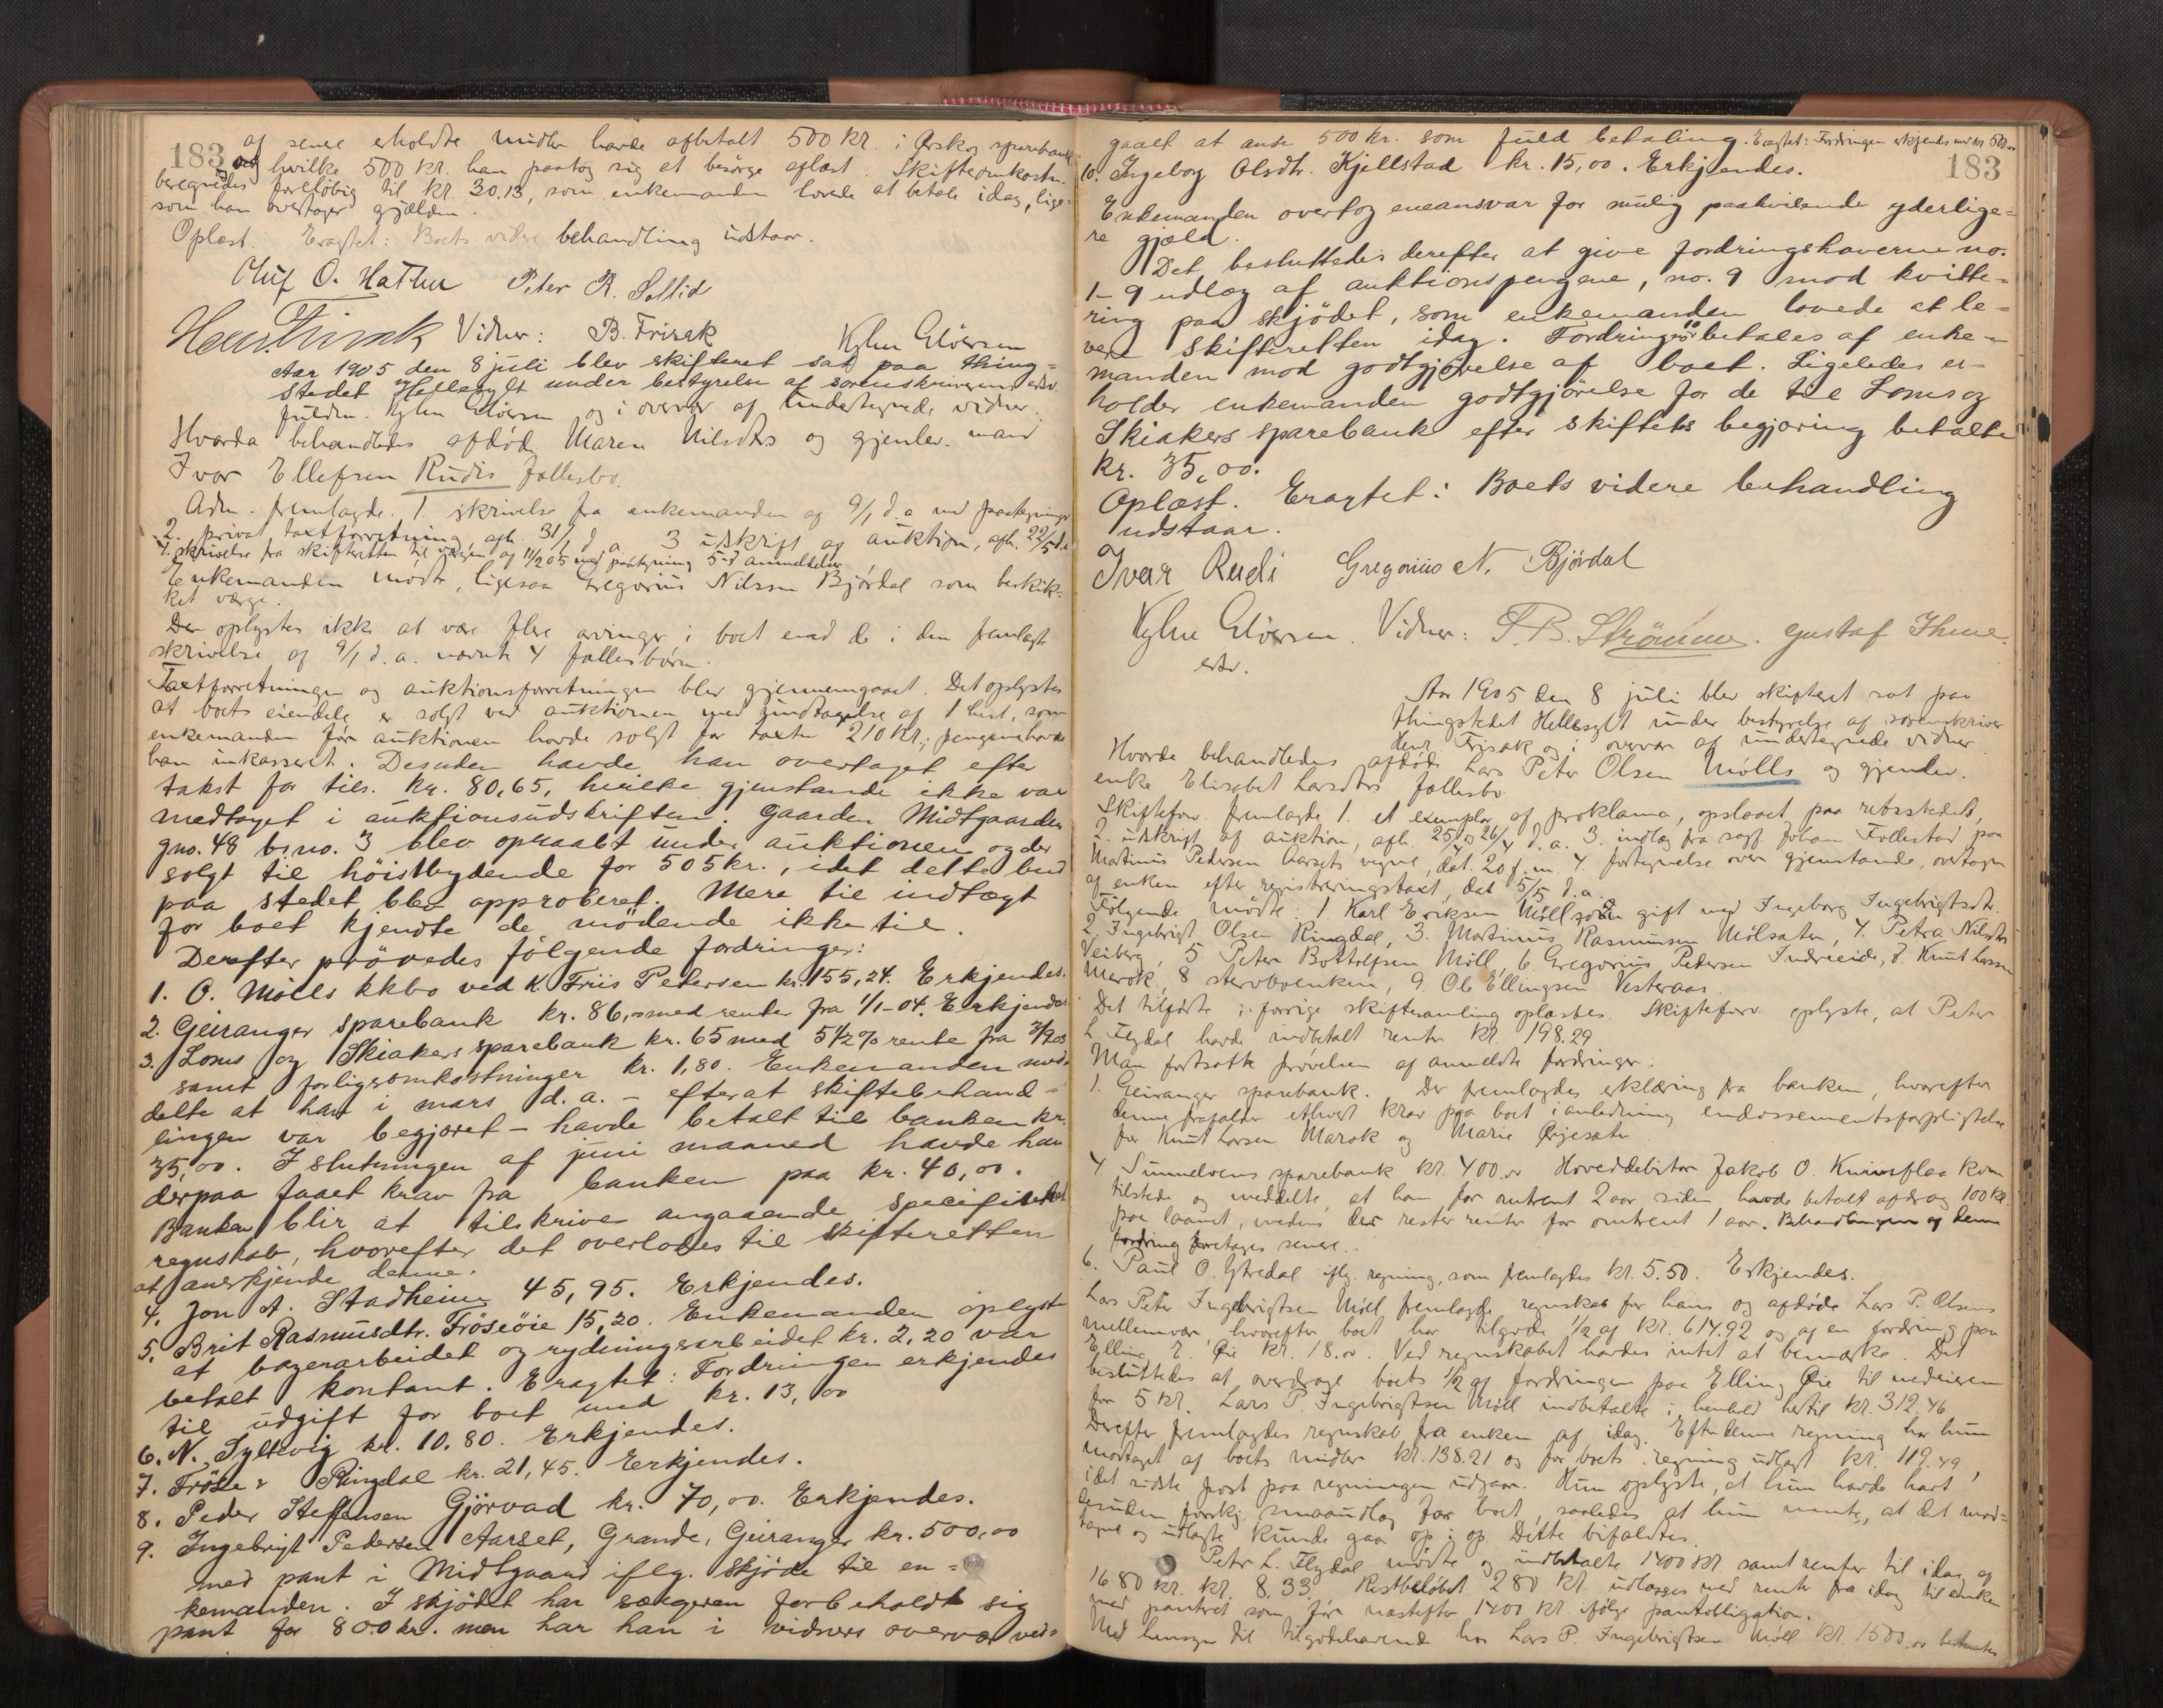 183
af senere erholdte midler havde afbetalt 500 kr. i Ørskog sparebank
og hvilke 500 kr. han paatog sig at besørge aflæst. Skifteomkostn.
beregnedes foreløbig til kr. 30.13, som enkemanden lovede at betale idag, lige-
som han overtager gjælden.
Oplæst. Eragtet: Boets videre behandling udstaar.
Oluf O. Hathu Peter R. Sollid
Hen. Frisak Vidner: B. Frisak
Aar 1905 den 8 juli blev skifteret sat paa thing-
stedet Hellesylt under bestyrelse af sorenskriverens edsv.
fuldm. og i overvær af undertegnede vidner.
Hvorda behandledes afdøde Maren Nilsdtrs og gjenlev. mand
Ivar Ellefsen Rudis fællesbo.
Adm. fremlagde. 1. skrivelse fra enkemanden af 9/1 d.a. med paategninger
2. privat taxtforretning, afh. 31/1 d. a. 3 udskrift af auktion, afh. 22/5 d.a.
4. skrivelse fra skifteretten til værgen af 11/2 05 med paategning 5-d anmeldelser
Enkemanden mødte, ligesaa Gregorius Nilssen Bjørdal som beskik-
ket værge.
Der oplystes ikke at være flere arvinger i boet end de i den fremlagte
skrivelse af 9/1 d. a. nævnte 4 fællesbørn.
Taxtforretningen og auktionsforretningen blev gjennemgaaet. Det oplystes
at boets eiendele er solgt ved auktionen med undtagelse af 1 hest, som
enkemanden før auktionen havde solgt for taxten 210 kr.; pengene havde
han inkasseret. Desuden havde han overtaget efter
takst for tils. kr. 80,65, hvilke gjenstande ikke var
medtaget i auktionsudskriften. Gaarden Midtgaarden
gno. 48 bno. 3 blev opraabt under auktionen og der
solgt til høistbydende for 505 kr., idet dette bud
paa stedet blev approberet. Mere til indtægt
for boet kjendte de mødende ikke til.
Derefter prøvedes følgende fordringer:
1. O. Mølls kkbo ved K. Friis Petersen kr. 155,24. Erkjendes.
2. Geiranger sparebank kr. 86,00 med renter fra 1/1-04. Erkjendes
3. Loms og Skiakers sparebank kr. 65 med 5 1/2 % rente fra
samt forligsomkostninger kr. 1,80. Enkemanden med-
delte at han i mars d. a. - efterat skiftebehand-
lingen var begjæret - havde betalt til banken kr.
35,00. I slutningen af juni maaned havde han
derpaa faaet krav fra banken paa kr. 40,00.
Banken blir at tilskrive angaaende specificeret
regnskab, hvorefter det overlodes til skifteretten
at anerkjende denne.
4. Jon A. Stadheim 45,95. Erkjendes.
5. Brit Rasmusdtr. Frøseøie 15,20. Enkemanden oplyste
at bagerarbeidet og rydningsarbeidet kr. 2,20 var
betalt kontant. Eragtet: Fordringen erkjendes
til udgift for boet med kr. 13,00
6. N. Sylkvig kr. 10.80. Erkjendes.
7. Ringdal kr. 21,45. Erkjendes.
8. Peder Steffensen Gjørvad kr. 70,00. Erkjendes.
9. Ingebrigt Pedersen Aarset, Grande, Geiranger kr. 500,00
med pant i Midtgaard iflg. skjøde til en-
kemanden. I skjødet har sælgeren forbeholdt sig
pant for 800 kr. men har han i vidners overvær ved-
183
gaaet at anse 500 kr. som fuld betaling. Eragtet: Fordringen erkjendes med kr. 500.00
10. Ingeborg Olsdtr. Kjellstad kr. 15,00. Erkjendes.
Enkemanden overtog eneansvar for mulig paahvilende yderlige-
re gjæld.
Det besluttedes derefter at give fordringshaverne no.
1-9 udlæg af auktionspengene, no. 9 mod kvitte-
ring paa skjødet, som enkemanden lovede at le-
vere skifteretten idag. Fordring no 10 betales af enke-
manden mod godtgjørelse af boet. Ligeledes er-
holder enkemanden godtgjørelse for de til Loms og
Skiakers sparebank efter skiftets begjæring betalte
kr. 35,00.
Oplæst. Eragtet: Boets videre behandling
udstaar.
Ivar Rudi Gregorius N. Bjørdal
Vidner: P. B. Strømme. Gustaf Thue.
edsv.
Aar 1905 den 8 juli blev skifteret sat paa
thingstedet Hellesylt under bestyrelse af sorenskriver
Henr. Frisak og i overvær af undertegnede vidner
Hvorda behandledes afdøde Lars Peter Olsen Mølls og gjenlev.
enke Elisabet Larsdtrs fællesbo
Skifteforv. fremlagde 1. et exemplar af proklama, opslaaet paa retsstedet,
2. udskrift af auktion, afh. 25 og 26/4 d. a. 3. indlæg fra sagf. Johan Follestad paa
Martinus Pedersen Aarsets vegne, dat. 20 f. m. 4. fortegnelse over gjenstande, overtagne
af enken efter registreringstaxt, dat 5/5 d. a.
Følgende mødte: 1. Karl Eriksen Møll, som gift med Ingeborg Ingebrigtsdtr.
2. Ingebrigt Olsen Ringdal, 3. Martinus Rasmussen Mølsæter, 4. Petra Nilsdtr
Veiberg, 5 Peter Bottolfsen Møll, 6 Gregorius Pedersen Indreeide, 7. Knut Larsen
Merok, 8 stervboenken, 9. Ole Ellingsen Vesteraas.
Det tilførte i forrige skiftesamling oplæstes. Skifteforv. oplyste, at Peter
L. Flydal havde indbetalt renter kr. 198.29
Man fortsatte prøvelsen af anmeldte fordringer.
1. Geiranger sparebank. Der fremlagdes erklæring fra banken, hvorefter
denne frafalder ethvert krav paa boet i anledning endossementsforpligtelse
for Knut Larsen Marok og Marie
4. Sunnelvens sparebank kr. 400.00 Hoveddebitor Jakob O. kom
tilstede og meddelte, at han for omtrent 2 aar siden havde betalt afdrag 100 kr.
paa laanet, medens der rester renter for omtrent 1 aar. Behandlingen af denne
fordring foretages senere.
6. Paul O. Gjredal iflg. regning, som fremlagdes kr. 5.50. Erkjendes.
Lars Peter Ingebrigtsen Møll fremlagde regnskab for hans og afdøde Lars P. Olsens
mellemvær, hvorefter boet har tilgode 1/2 af kr. 614.92 og af en fordring paa
Elling E. Øie kr. 18.00. Ved regnskabet havdes intet at bemærke. Det
besluttedes at overdrage boets 1/2 af fordringen paa Elling Øie til medeieren
for 5 kr. Lars P. Ingebrigtsen Møll indbetalte i henhold hertil kr. 312.46
Derefter fremlagdes regnskab fra enken af idag. Efter denne regning har hun
modtaget af boets midler kr. 138.21 og for boets regning udlagt kr. 119.49,
idet sidste post paa regningen udgaar. Hun oplyste, at hun havde havt
desuden forskj. smaaudlæg for boet, saaledes at hun mente, at det mod-
tagne og udlagte kunde gaa op i op. Dette bifaldtes.
Peter L. Flydal mødte og indbetalte 1400 kr. samt renter til idag af
1680 kr. kr. 8.33. Restbeløbet 280 kr. udlægges med renter fra idag til enken
med panteret som før næstefter 1400 kr ifølge pantobligation.
Med hensyn til tilgodehavende hos Lars P. Ingebrigtsen Møll kr. 1500.00 bestemtes